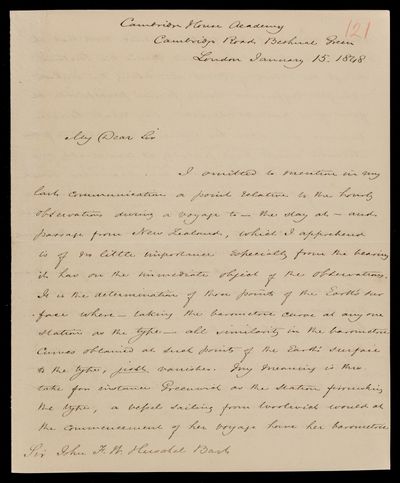 Cambridge House Academy
121
Cambridge Road Bethnal Green
London January 15. 1848
My Dear Sir
I omitted to mention in my
last communication a point relative to the hourly
observations during a voyage to — the stay at — and
passage from New Zealand, which I apprehend
is of no little importance especially from the bearing
it has on the immediate object of the observations.
It is the determination of those points of the Earth's sur
-face where — taking the barometric curve at any one
station as the type — all similarity in the barometric
curves obtained at such points of the Earth's surface
to the type, just vanishes. My meaning is this
take for instance Greenwich as the station furnishing
the type, a vessel sailing from Woolwich would at
the commencement of her voyage have her barometric
Sir John F. W. Herschel Bart